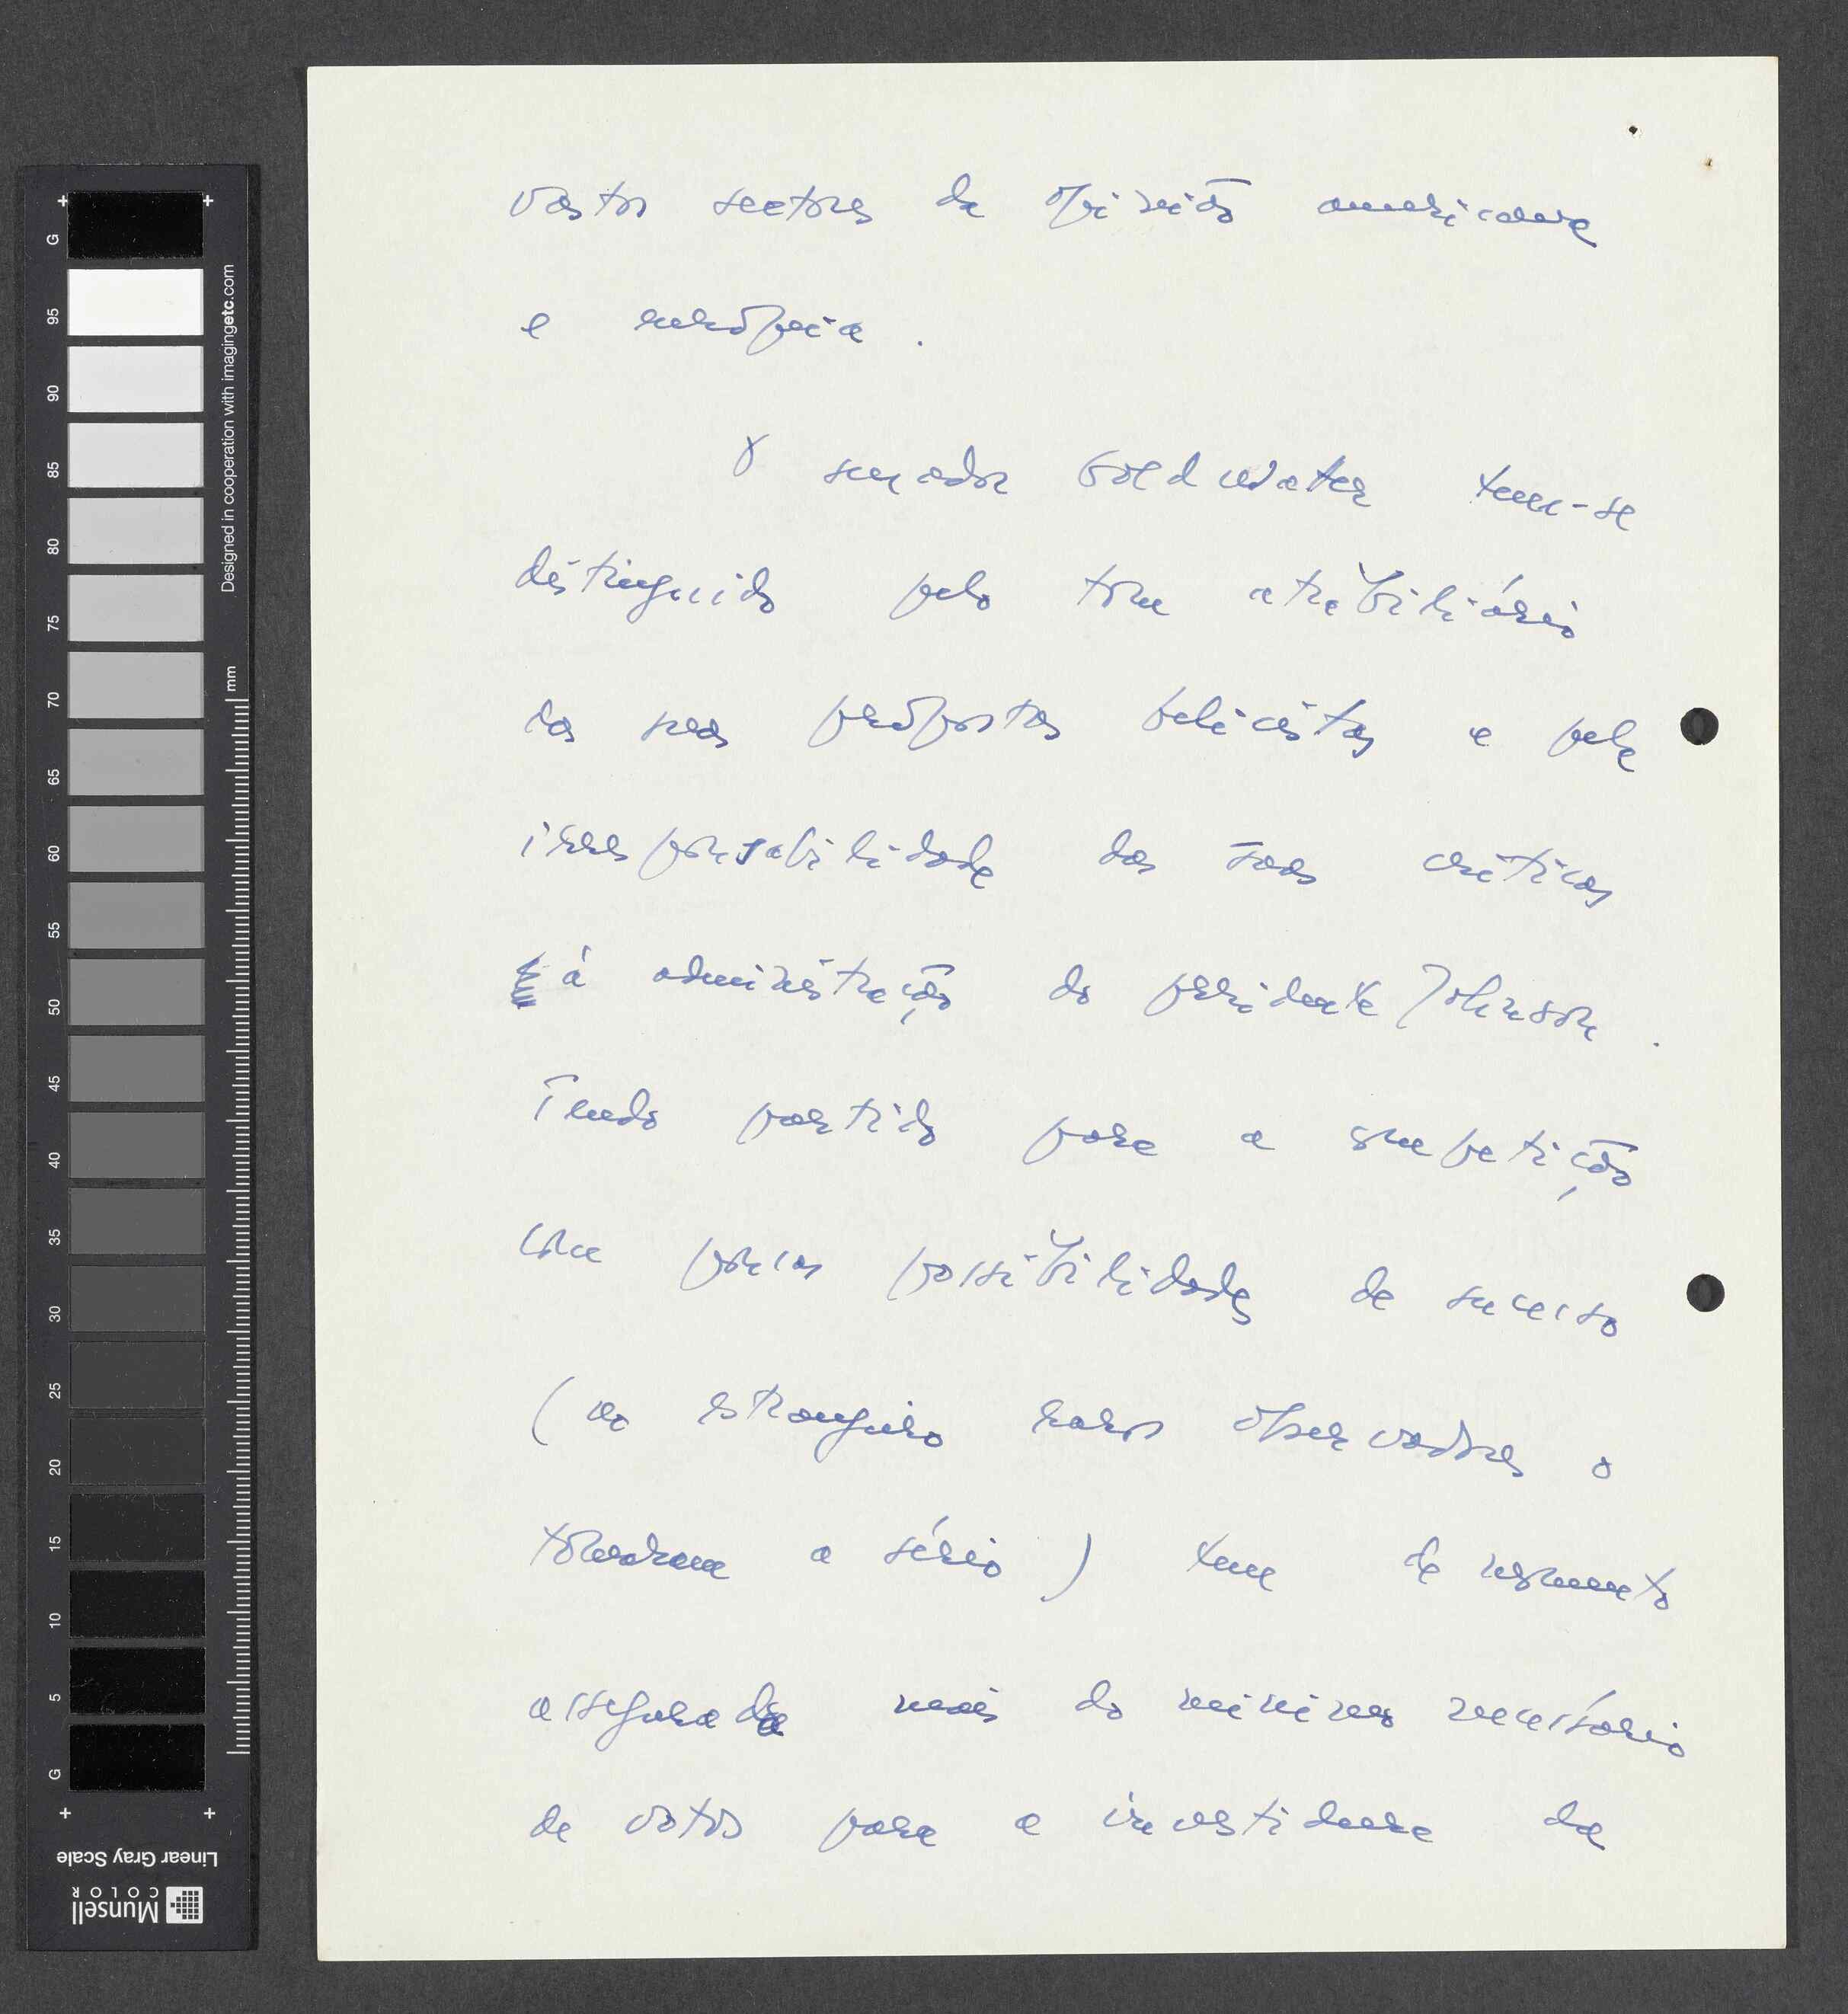 vastos sectores da opinião americana
e européia.
O senador Goldwater tem-se
distinguido pelo tom atrabiliário
das suas propostas belicistas e pela
irresponsabilidade das suas críticas
à administração do presidente Johnson.
Tendo partido para a competição
com poucas possibilidades de sucesso
(no estrangeiro raros observadores o
tomaram a sério) tem de momento
assegurada mais do mínimo necessário
de votos para a investidura da
G 95 90 85 80 75 70 65 60 55 50 45 40 35 30 25 20 15 10 5 G
mm
Designed in cooperation with imagingetc.com
Linear Gray Scale
Munsell
COLOR